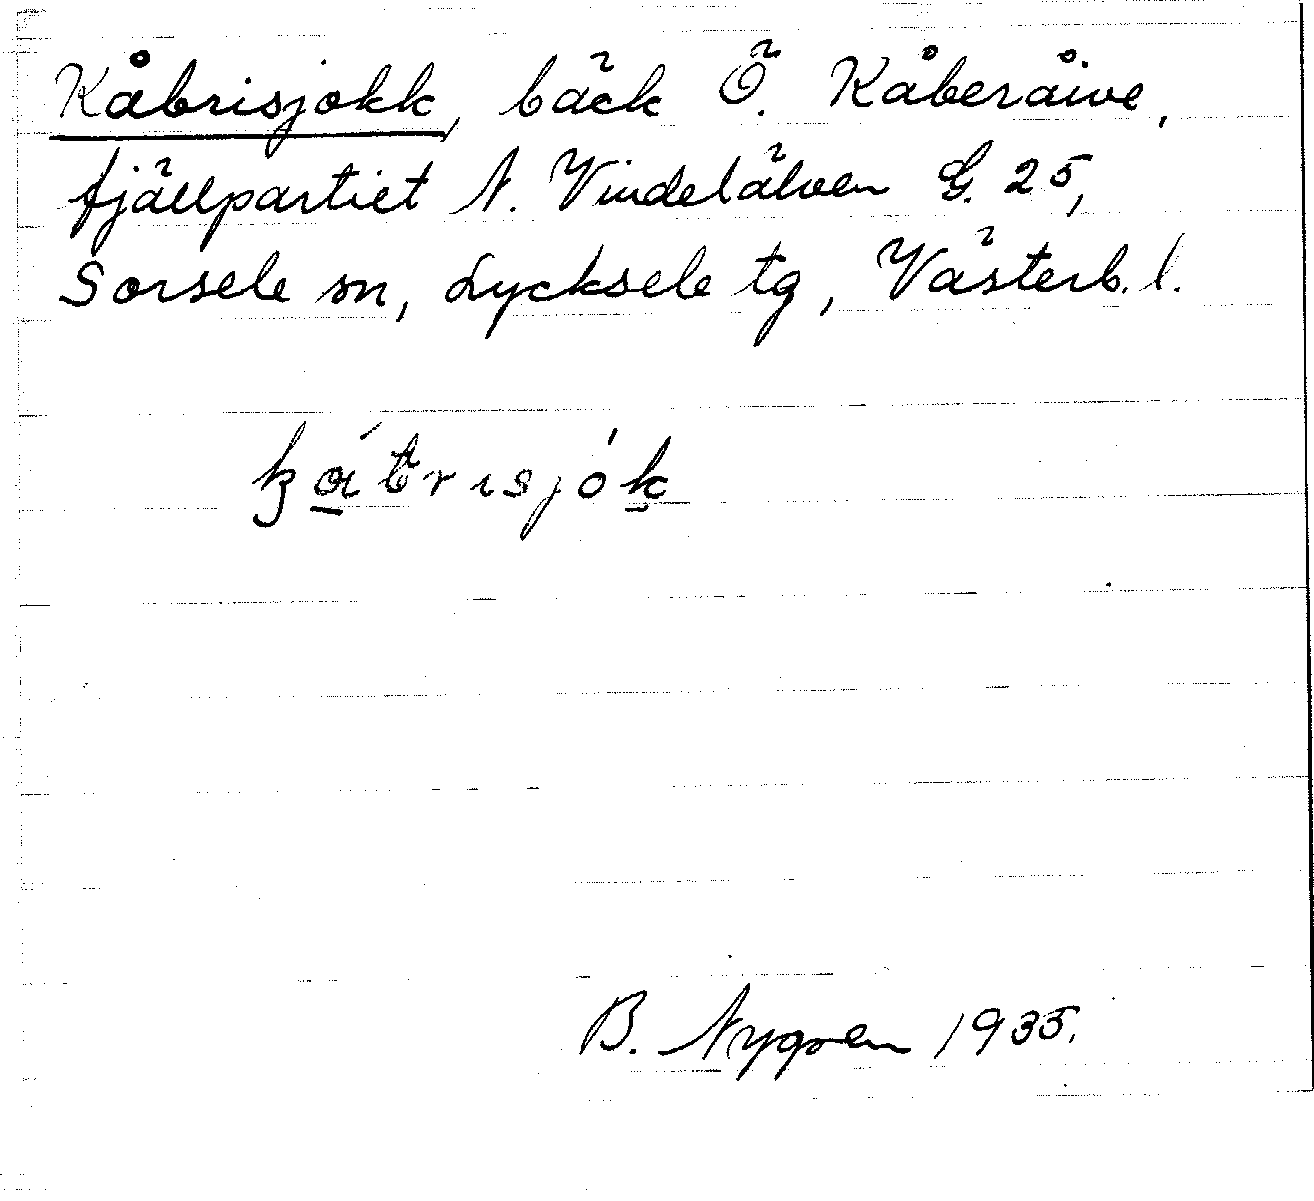 Kåbrisjokk, bäck Ö. Kåberåive,
fjällpartiet N. Vindelälven G. 25,
Sorsele sn, Lycksele tg, Västerb. l.
B. Nygren 1935.